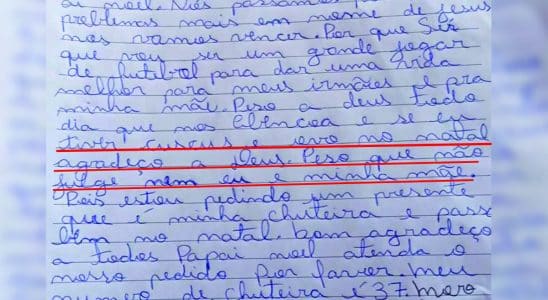 ai noel. Nós passamos p
problemas mais em nome de jesus
nos vamos vencer. Por que sir
que vou ser um grande jogar
de futibol para dar uma vida
melhor para meus irmães e pra
minha mãe. Peso a deus todo
dia que nos elencoa e se eu
tiver cuscus e ovo no natal
agradeço a Deus. Peso que não
julge nem eu e minha mãe.
Pois estou pedindo um presente
que é minha chuteira e pass
bem no natal. bom agradeço
a todos Papai noel atenda o
nosso pedido por favor. Meu
numero de chuteira é 37 moro